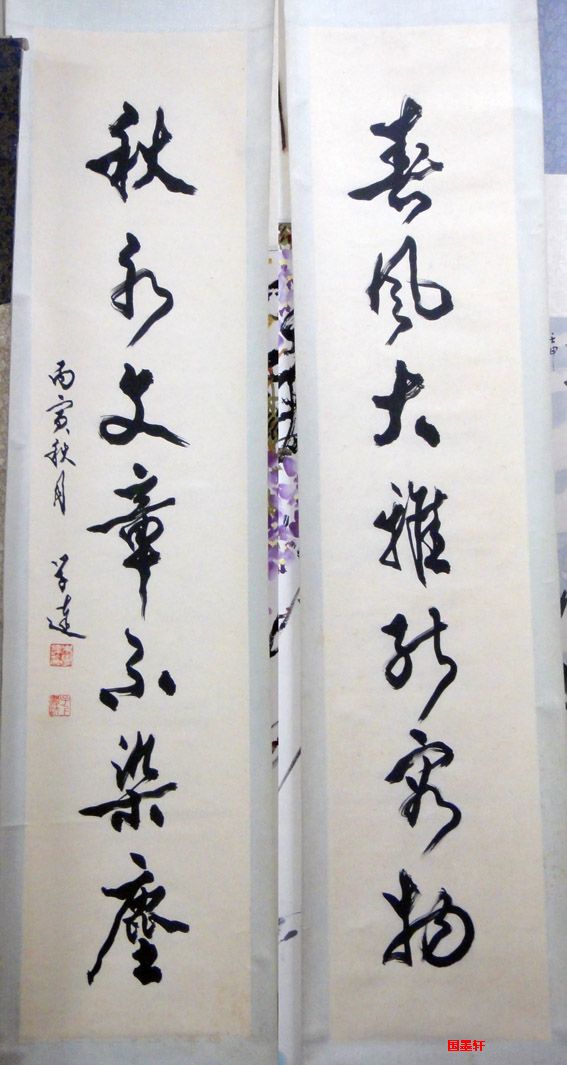 春风大雅能容物
秋水文章不染塵
丙寅秋月
学達
国墨轩